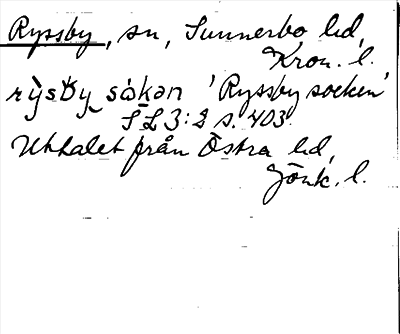 Ryssby, sn, Sunnerbo hd,
Kron. l.
rỳsby sókən 'Ryssby socken'
SL 3:2 s. 403.
Uttalet från Östra hd,
Jönk. l.